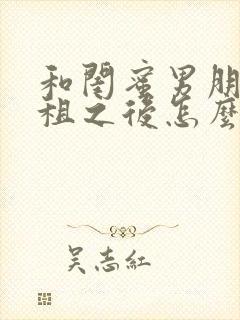 和閨蜜男朋
租之後怎麼
吳志紅